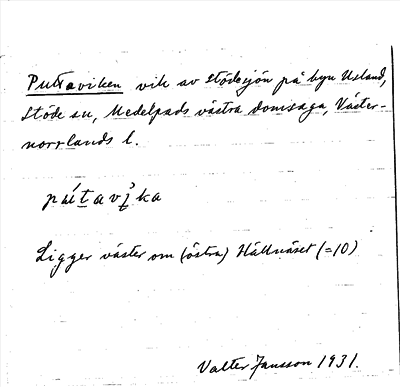 Puttaviken vik av Stödesjön på byn Usland,
Stöde sn, Medelpads västra domsaga, Väster-
norrlands l.
Ligger väster om (östra) Hällnäset (=10)
Valter Jansson 1931.